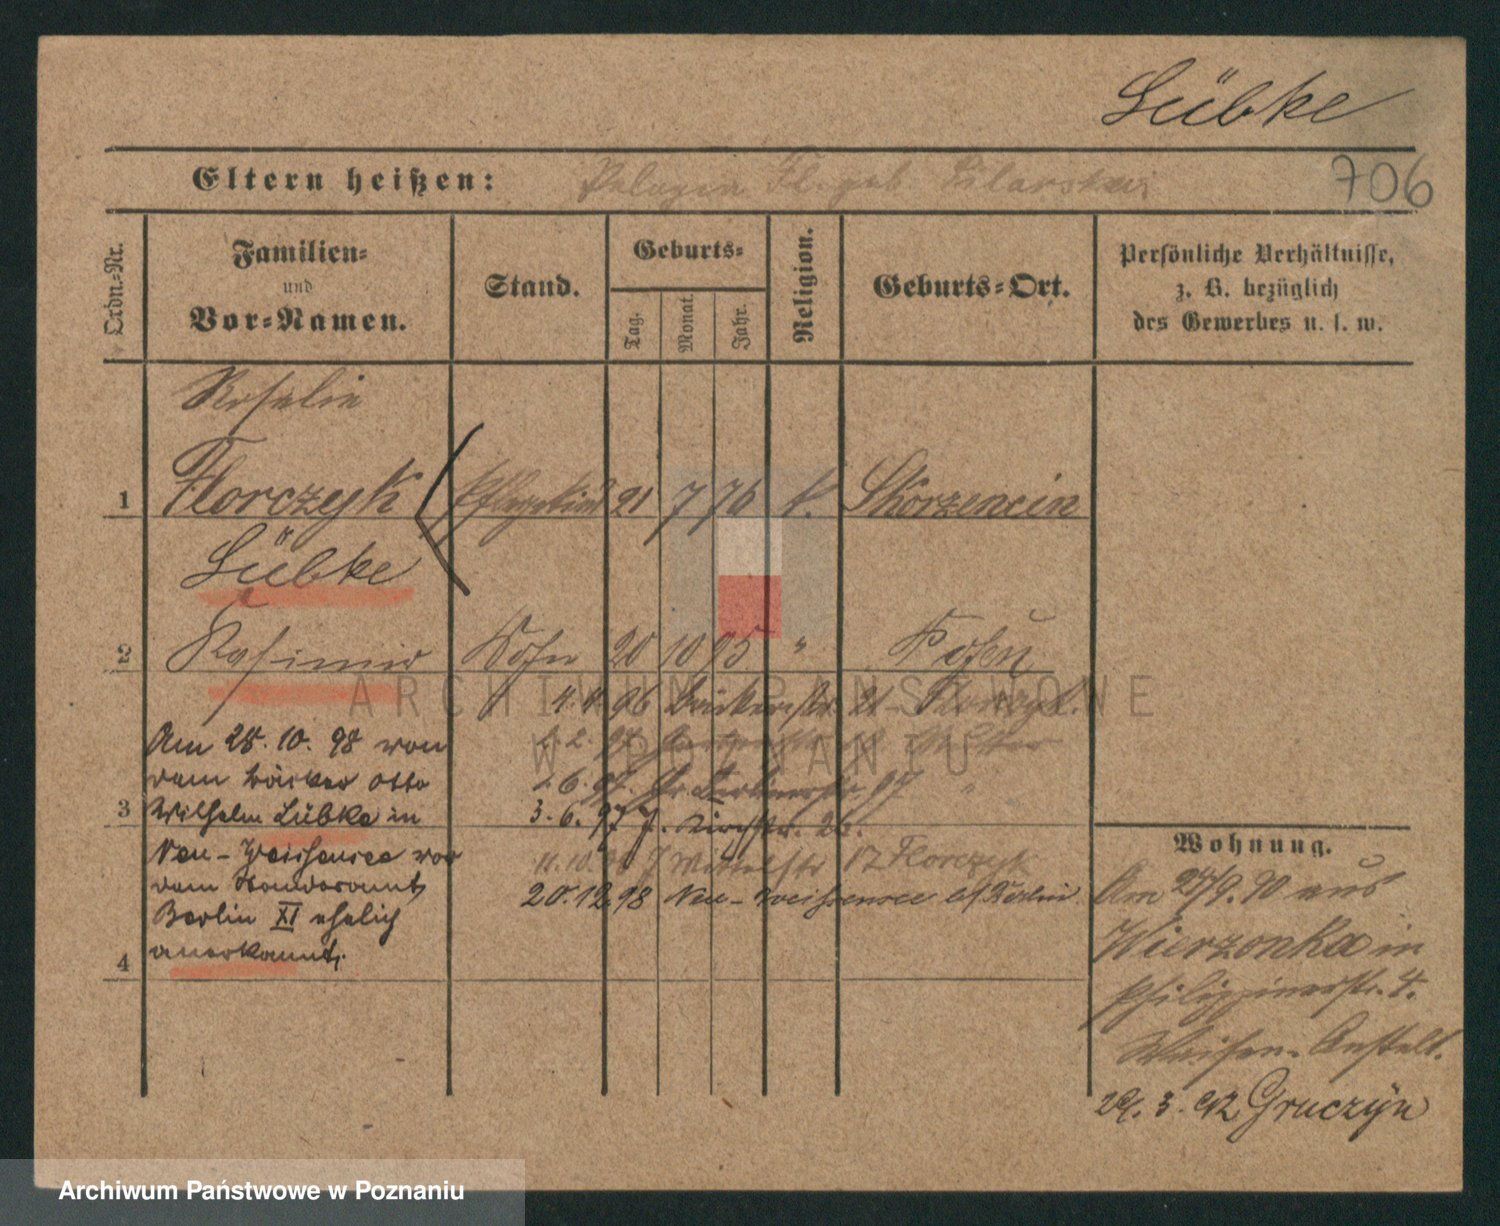 Lübke
706
Eltern heißen: Pelagia Fl. geb. Pilarska
Ordn.-Nr.
Familien-
und
Vor-Namen.
Stand.
Geburts-
Tag.
Monat.
Jahr.
Religion.
Geburts-Ort.
Persönliche Verhältnisse,
z. B. bezüglich
des Gewerbes u. s. w.
Rosalie
1 Florczyk Pflegekind 21 7 76 k. Skorzencin
Lübke
2 Kasimir Sohn 20 10 95 " Posen
4. 4. 96 Bäckerstr. 21 Florczyk.
2. 97
6. 97. Gr. Berlinerstr. 97 "
3. 6. 97 Kirchstr. 26.
11. 10. 12 Florczyk
20. 12. 98 Neu-Weißensee b/ Berlin
Am 28. 10. 98 von
dem Bäcker Otto
3 Wilhelm Lübke in
Neu-Weißensee vor
dem Standesamt
Berlin XI ehelich
4 anerkannt.
Wohnung.
Am 24/9. 90 aus
Wierzonka in
Philippinerstr. 4.
Waisen-Anstalt.
29. 3. 92 Gruczyn
ARCHIWUM PAŃSTWOWE
W POZNANIU
Archiwum Państwowe w Poznaniu